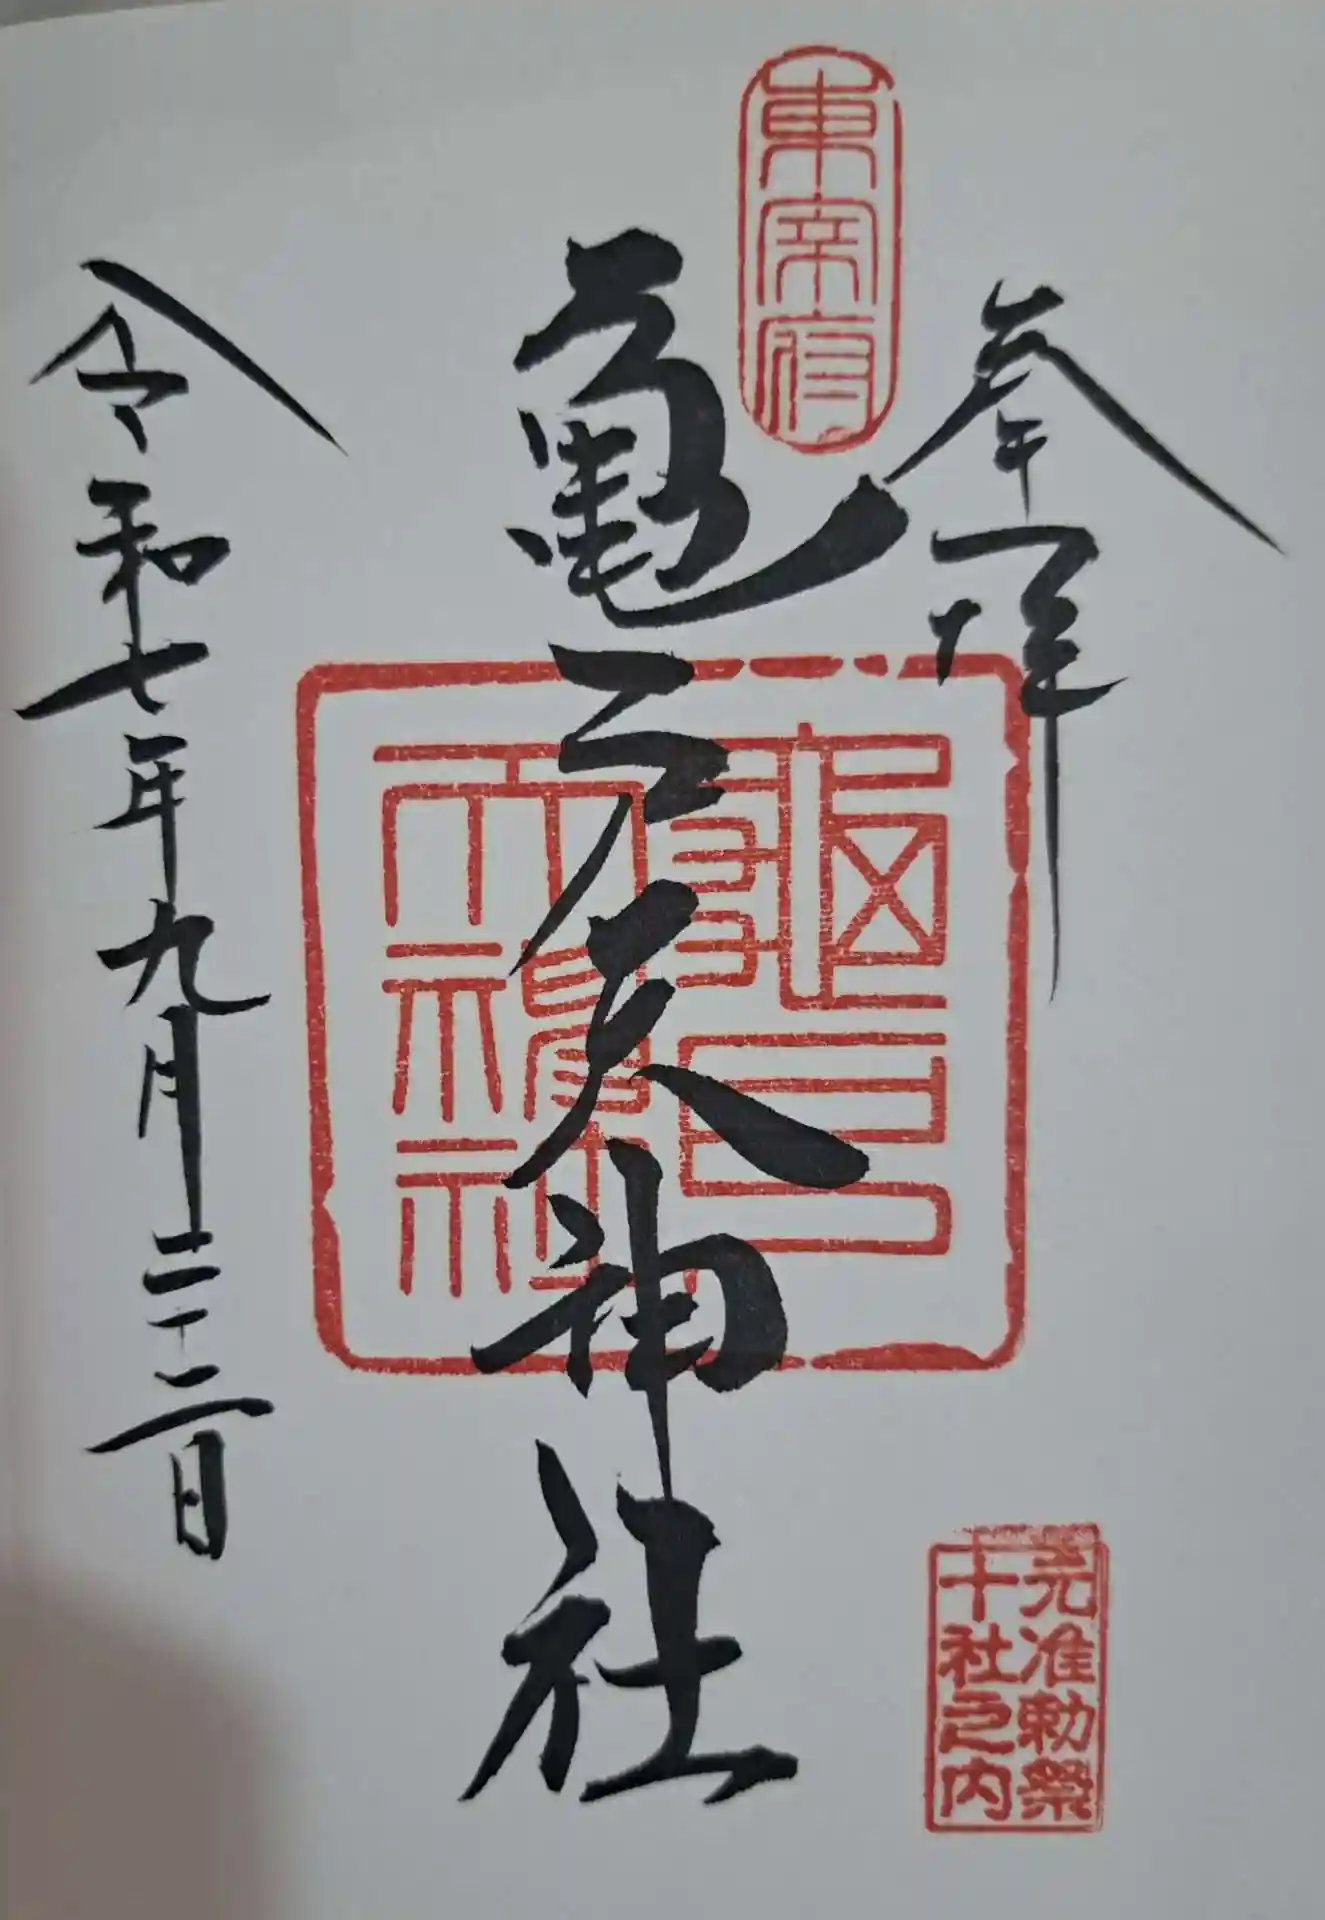 参拝
東宰府
亀戸天神社
龜戸天神社
令和七年九月二十二日
元准勅祭
十社之内